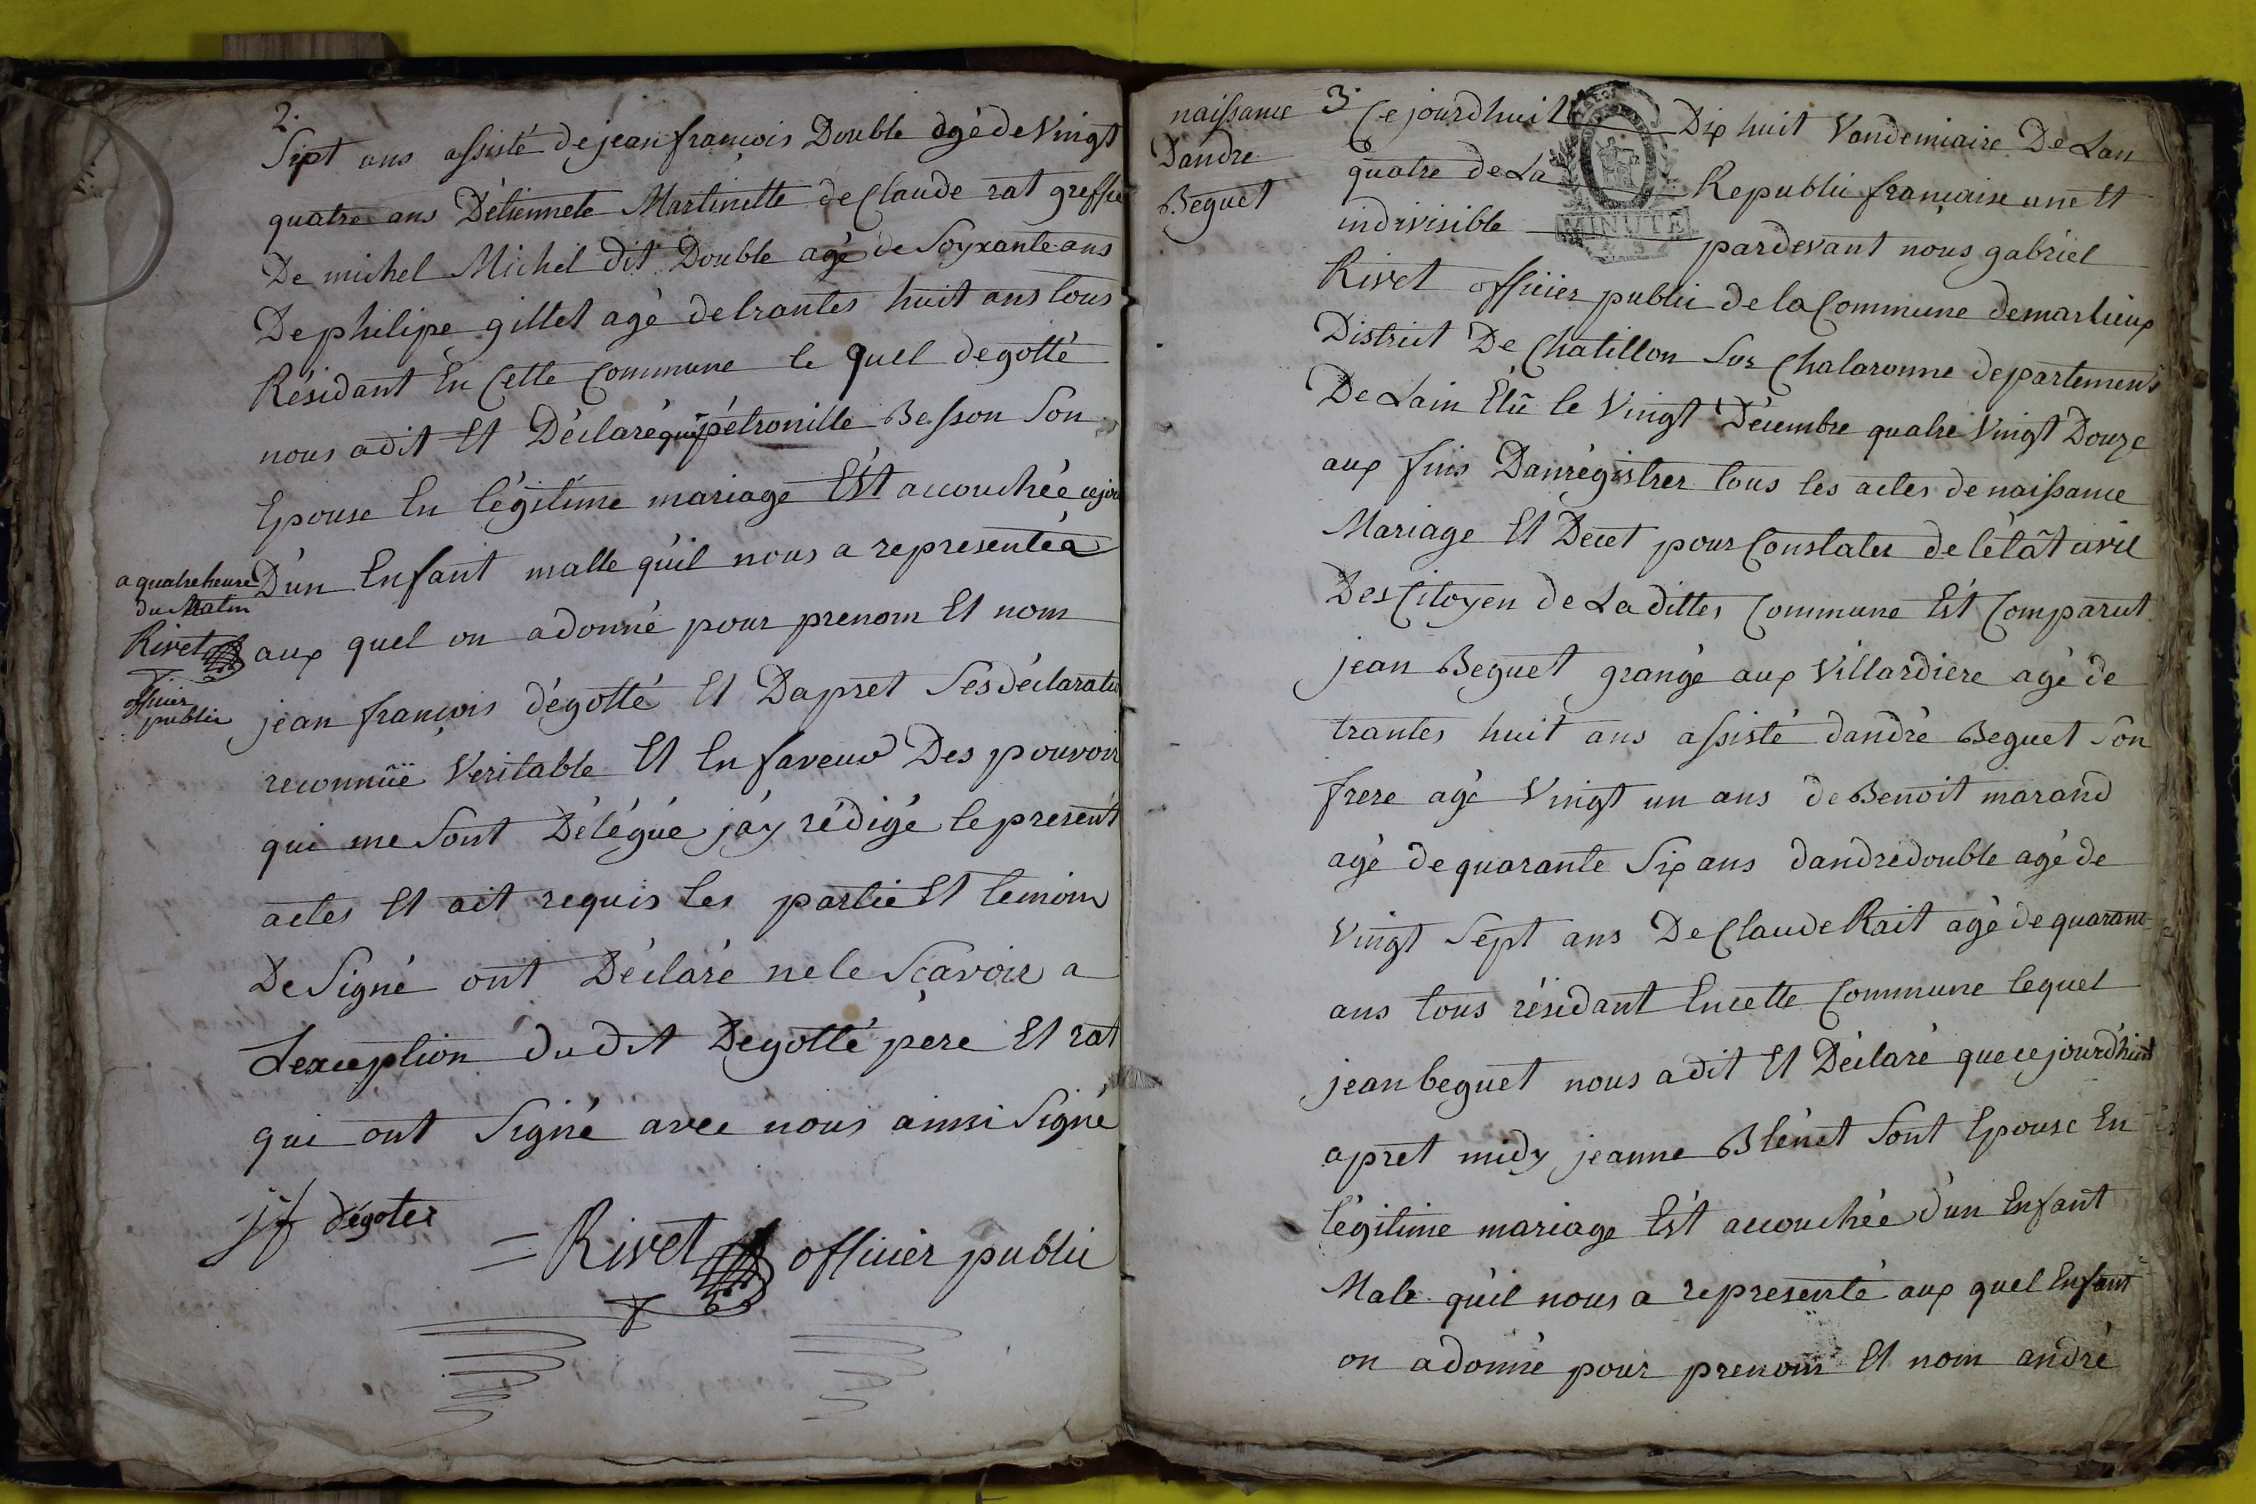 2.
Sept ans assisté de jean françois Double agé de Vingt
quatre ans D'étiennete Martinette de Claude rat greffie
De michel Michel dit Double agé de Soyxante ans
De philipe gillet agé de trantes huit ans tous
Résidant En Cette Commune le quel degotté
nous a dit Et Déclaré que pétronille Besson Son
Epouse En légitime mariage Est accouchée cejou
a quatre heure
du Matin
Rivet
officier
public
D'un Enfant malle qu'il nous a representéa
aux quel on a donné pour prenom Et nom
jean françois dégotté Et Dapret Ses déclaratio
reconnüe Veritable Et En faveur Des pouvoir
qui me Sont Délégué j'ay rédigé le present
actes Et ait requis les partie Et temoin
De Signé ont Déclaré ne le Sçavoir a
Lexception du dit Degotté père Et rat
qui ont Signé avec nous ainsi Signé
jf dégoter
= Rivet officier public
naissance
Dandre
Beguet
3.
Ce jourdhuit Dix huit Vandemiaire De Lan
quatre de La Republic française une Et
indivisible pardevant nous gabriel
MINUTE
Rivet officier public de la Commune demarlieux
District De Chatillon Sur Chalaronne departement
De Lain Elü le Vingt Décembre quatre Vingt Douze
aux fins Danrégistrer tous les actes de naissance
Mariage Et Decet pour Constater de létât civil
Des Citoyen de La dittes Commune Est Comparut
jean Beguet grangé aux Villardiere agé de
trantes huit ans assisté dandré Beguet Son
frere agé Vingt un ans de Benoit marand
agé de quarante Six ans dandré double agé de
Vingt Sept ans De Claude Rait agé de quarant
ans tous résidant En cette Commune lequel
jean beguet nous a dit Et Déclaré que ce jourd'huit
apret midy jeanne Blénet Sont Epouse En
légitime mariage Est accouchée d'un Enfant
Male qu'il nous a representé aux quel Enfant
on a donné pour prenom Et nom andré